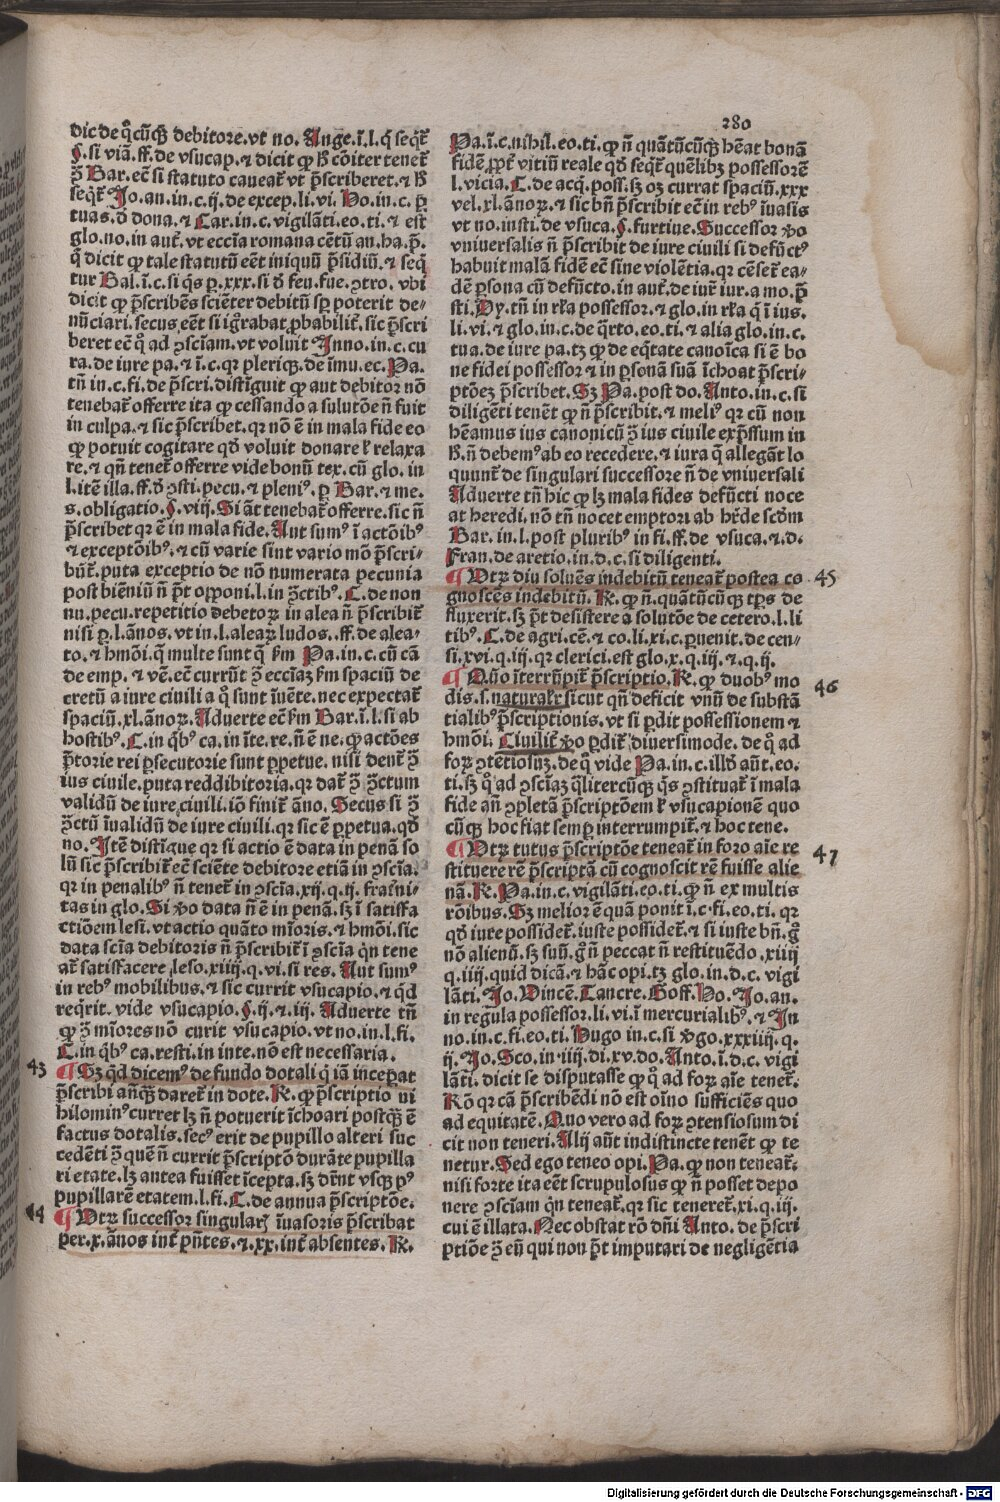 280
dic de q̊cūqꝫ debitore. vt no. Ange. ī. l. q̄ seq̄t̄
§. si viā. ff. de vsucap. ⁊ dicit ꝙ ꝟ cōiter tenet̄
ꝫ̄ Bar. ec̄ si statuto caueat̄ vt p̄scriberet. ⁊ ꝟ
seq̄t̄ Jo. an. in. c. ij. de excep. li. vi. Ho. in. c. ꝑ
tuas. ð dona. ⁊ Car. in. c. vigilāti. eo. ti. ⁊ est
glo. no. in aut̄. vt eccīa romana cētū an. ha. p̄.
q̄ dicit ꝙ tale statutū eēt iniquū p̄sidiū. ⁊ seq̄
tur Bal. ī. c. si q̄s ꝑ. xxx. si ð feu. fue. ꝯtro. vbi
dicit ꝙ p̄scribēs sciēter debitū sꝑ poterit de-
nūciari. secus eēt si ig̊rabat ꝓbabilit̄. sic p̄scri
beret ec̄ q̄ ad ꝯsciam. vt voluit Inno. in. c. cu
ra. de iure pa. ⁊ ī. c. qꝛ pleriqꝫ. de īmu. ec. Pa.
tn̄ in. c. fi. de p̄scri. distiguit ꝙ aut debitor nō
tenebat̄ offerre ita ꝙ cessando a solutōe n̄ fuit
in culpa. ⁊ sic p̄scribet. qꝛ nō ē in mala fide eo
ꝙ potuit cogitare qð voluit donare ł relaxa
re. ⁊ qn̄ tenet̄ offerre vide bonū tex. cū glo. in
l. itē illa. ff. ð ꝯsti. pecu. ⁊ pleniꝰ. ꝑ Bar. ⁊ me.
s. obligatio. §. viij. Si āt tenebat̄ offerre. sic n̄
p̄scribet qꝛ ē in mala fide. Aut sumꝰ ī actōibꝰ
⁊ exceptōibꝰ. ⁊ cū varie sint vario mō p̄scri-
būt̄. puta exceptio de nō numerata pecunia
post bieniū n̄ p̄t opponi. l. in ꝯ̄ctibꝰ. C. de non
nu. pecu. repetitio debetoꝝ in alea n̄ p̄scribit̄
nisi ꝑ. l. ānos. vt in. l. alearꝫ ludos. ff. de alea-
to. ⁊ hmōi. q̄ multe sunt q̄ ẜm Pa. in. c. cū cā
de emp. ⁊ vē. ec̄ currūt ꝫ̄ eccīaꝫ ẜm spaciū de
cretū a iure ciuili a q̊ sunt īuēte. nec expectat̄
spaciū. xl. ānoꝝ. Aduerte ec̄ ẜm Bar. ī. l. si ab
hostibꝰ. C. in q̄bꝰ ca. in īte. re. n̄ ē ne. ꝙ actōes
p̄torie rei ꝑsecutorie sunt ꝑpetue. nisi dent̄ ꝫ̄
ius ciuile. puta reddibitoria. qꝛ dat̄ ꝫ̄ ꝯ̄ctum
validū de iure ciuili. iō finit̄ āno. Secus si ꝫ̄
ꝯ̄ctū īualidū de iure ciuili. qꝛ sic ē ꝑpetua. qð
no. Itē distigue qꝛ si actio ē data in penā so
lū sic p̄scribit̄ ec̄ sciēte debitore etiā in ꝯscīa.
qꝛ in penalibꝰ n̄ tenet̄ in ꝯscīa. xij. q. ij. fraꝭni-
tas in glo. Si ꝟo data n̄ ē in penā. sꝫ ī satisfa
ctiōem lesi. vt actio quāto mīoris. ⁊ hmōi. sic
data scīa debitoris n̄ p̄scribit̄ ī ꝯscīa qin tene
at̄ satisfacere leso. xiiij. q. vi. si res. Aut sumꝰ
in rebꝰ mobilibus. ⁊ sic currit vsucapio. ⁊ q̄d
req̄rit. vide vsucapio. §. ij. ⁊. iij. Aduerte tn̄
ꝙ ꝫ̄ mīores nō curit vsucapio. vt no. in. l. fi.
C. in q̄bꝰ ca. resti. in inte. nō est necessaria.
43 ¶ Sꝫ q̄d dicemꝰ de fundo dotali q̄ iā inceꝑat
p̄scribi ān̄qꝫ daret̄ in dote. R̄. ꝙ p̄scriptio ni
hilominꝰ curret lꝫ n̄ potuerit īchoari postqꝫ ē
factus dotalis. secꝰ erit de pupillo alteri suc
cedēti ꝫ̄ quē n̄ currit p̄scriptō durāte pupilla
ri etate. lꝫ antea fuisset īcepta. sꝫ dr̄nt vsqꝫ pꝰ
pupillarē etatem. l. fi. C. de annua p̄scriptōe.
44 ¶ Vtrꝫ successor singularꝭ īuasoris p̄scribat
per. x. ānos int̄ pn̄tes. ⁊. xx. int̄ absentes. R̄.
Pa. ī. c. nihil. eo. ti. ꝙ n̄ quātūcūqꝫ hēat bonā
fidē ꝓpt̄ vitiū reale qð seq̄t̄ quēlibꝫ possessorē
l. vicia. C. de acq̄. poss. sꝫ oꝫ currat spaciū. xxx
vel. xl. ānoꝝ. ⁊ sic bn̄ p̄scribit ec̄ in rebꝰ īuasis
vt no. insti. de vsuca. §. furtiue. Successor ꝟo
vniuersalis n̄ p̄scribit de iure ciuili si defūctꝰ
habuit malā fidē ec̄ sine violētia. qꝛ cēset̄ ea-
dē ꝑsona cū defūcto. in aut̄. de iur̄ iur. a mo. p̄
sti. Dy. tn̄ in rła possessor. ⁊ glo. in rła q̄ ī ius.
li. vi. ⁊ glo. in. c. de q̄rto. eo. ti. ⁊ alia glo. in. c.
tua. de iure pa. tꝫ ꝙ de eq̄tate canoīca si ē bo
ne fidei possessor ⁊ in ꝑsonā suā īchoat p̄scri-
ptōeꝫ p̄scribet. Sꝫ Pa. post do. Anto. in. c. si
diligēti tenēt ꝙ n̄ p̄scribit. ⁊ meliꝰ qꝛ cū non
hēamus ius canonicū ꝫ̄ ius ciuile exp̄ssum in
ꝟ. n̄ debemꝰ ab eo recedere. ⁊ iura q̄ allegāt lo
quunt̄ de singulari successore n̄ de vniuersali
Aduerte tn̄ hic ꝙ lꝫ mala fides defūcti noce
at heredi. nō tn̄ nocet emptori ab hr̄de scðm
Bar. in. l. post pluribꝰ in fi. ff. de vsuca. ⁊. d.
Fran. de aretio. in. d. c. si diligenti.
¶ Vtrꝫ diu soluēs indebitū teneat̄ postea co 45
gnoscēs indebitū. R̄. ꝙ n̄. quātūcūqꝫ tp̄s de
fluxerit. sꝫ p̄t desistere a solutōe de cetero. l. li
tibꝰ. C. de agri. cē. ⁊ co. li. xi. c. ꝑuenit. de cen-
si. xvi. q. iij. qꝛ clerici. est glo. x. q. iij. ⁊. q. ij.
¶ Quō īterrūpit̄ p̄scriptio. R̄. ꝙ duobꝰ mo 46
dis. s. naturalr̄ sicut qn̄ deficit vnū de substā
tialibꝰ p̄scriptionis. vt si ꝑdit possessionem ⁊
hmōi. Ciuilit̄ ꝟo ꝑdit̄ diuersimode. de q̊ ad
forꝫ ꝯtētiosuꝫ. de q̊ vide Pa. in. c. illd̄ aūt. eo.
ti. sꝫ q̊ ad ꝯsciaꝫ q̄litercūqꝫ q̄s ꝯstituat̄ ī mala
fide an̄ ꝯpletā p̄scriptōem ł vsucapionē quo
cūqꝫ hoc fiat semꝑ interrumpit̄. ⁊ hoc tene.
¶ Vtrꝫ tutus p̄scriptōe teneat̄ in foro aīe re 47
stituere rē p̄scriptā cū cognoscit rē fuisse alie
nā. R̄. Pa. in. c. vigilāti. eo. ti. ꝙ n̄ ex multis
rōibus. Sꝫ melior ē quā ponit ī. c. fi. eo. ti. qꝛ
qð iure possidet̄. iuste possidet̄. ⁊ si iuste bn̄. g̊
nō alienū. sꝫ suū. g̊ n̄ peccat n̄ restituēdo. xiiij
q. iiij. quid dicā. ⁊ hāc opi. tꝫ glo. in. d. c. vigi
lāti. Jo. Vincē. Tancre. Goff. Ho. Jo. an.
in regula possessor. li. vi. ī mercurialibꝰ. ⁊ In
no. in. c. fi. eo. ti. Hugo in. c. si ꝟgo. xxxiiij. q.
ij. Jo. Sco. in. iiij. di. xv. do. Anto. ī. d. c. vigi
lāti. dicit se disputasse ꝙ q̊ ad forꝫ aīe tenet̄.
Rō qꝛ cā p̄scribēdi nō est oīno sufficiēs quo
ad equitatē. Quo vero ad forꝫ ꝯtensiosum di
cit non teneri. Alij aūt indistincte tenēt ꝙ te
netur. Sed ego teneo opi. Pa. ꝙ non teneat̄.
nisi forte ita eēt scrupulosus ꝙ n̄ posset depo
nere ꝯsciam qin teneat̄. qꝛ sic teneret̄. xi. q. iij.
cui ē illata. Nec obstat rō dn̄i Anto. de p̄scri
ptiōe ꝫ̄ eū qui non p̄t imputari de negligētia
Digitalisierung gefördert durch die Deutsche Forschungsgemeinschaft - DFG